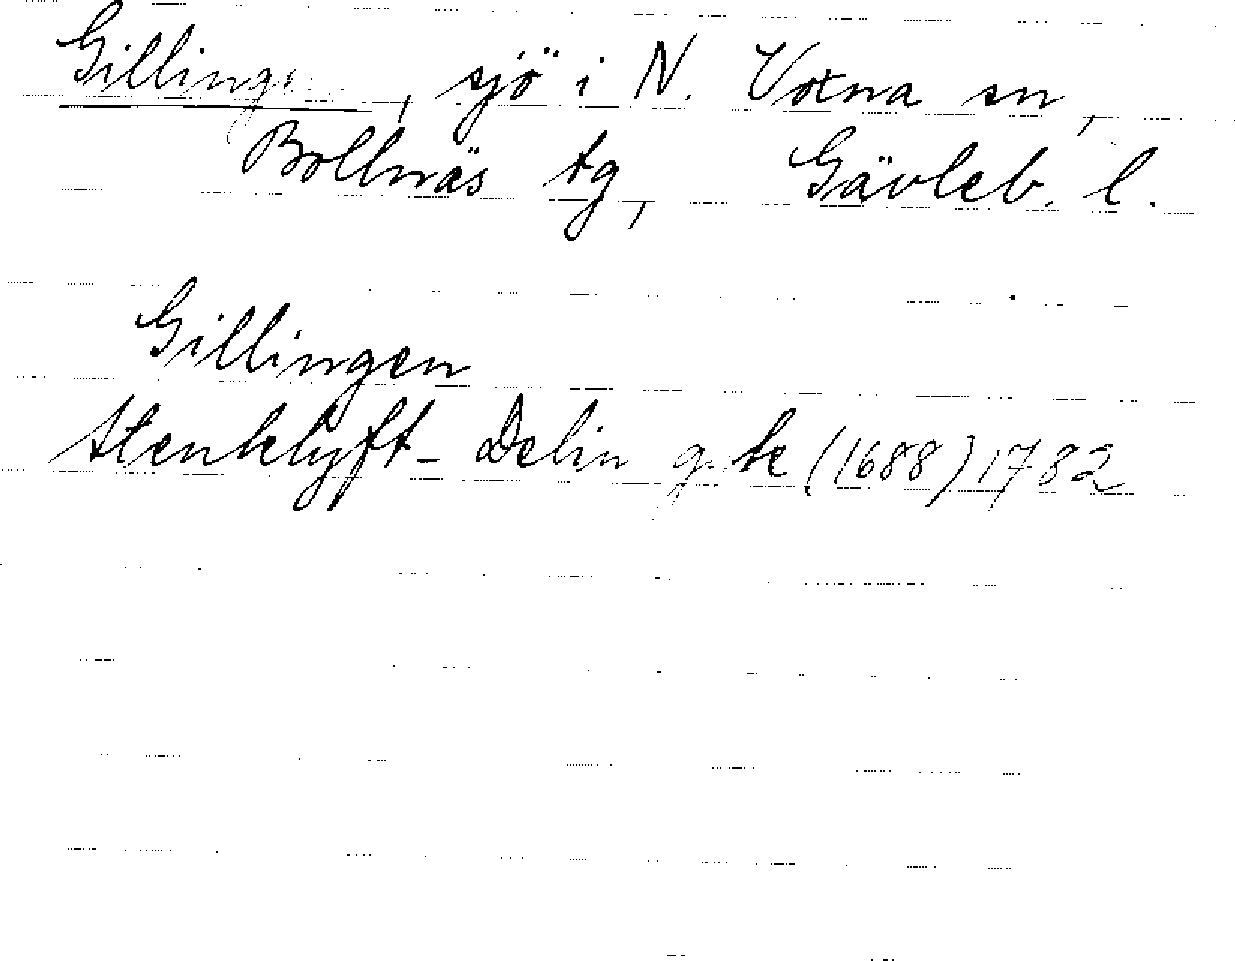 Gillingen, sjö i N. Voxna sn,
Bollnäs tg, Gävleb. l.
Gillingen
Stenklyft-Delin g. bk (1688) 1782